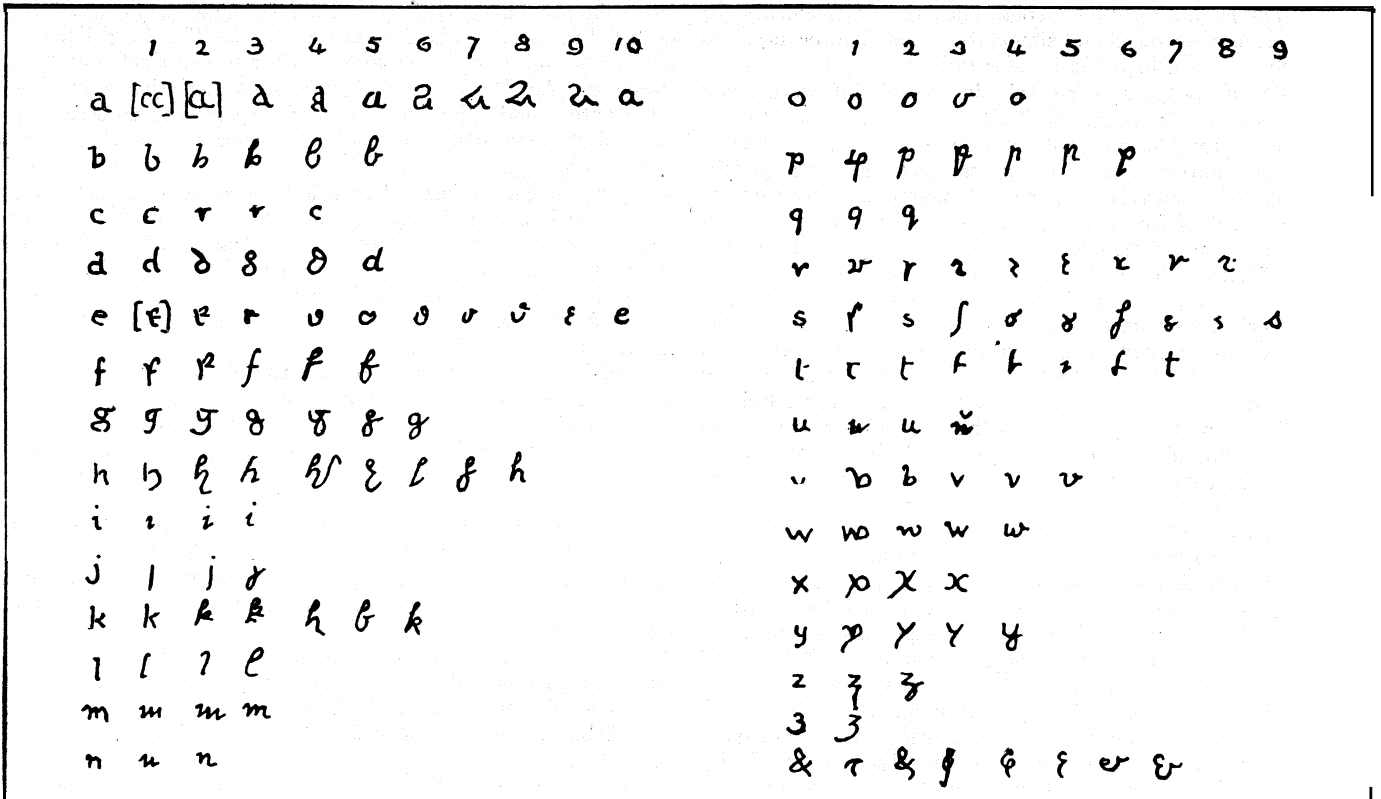 1 2 3 4 5 6 7 8 9 10
a [cc] [a] a a a a a a a a
b b b b b b
c c c c c
d d d d d d
e [e] e e e e e e e e e
f f f f f f
g g g g g g g
h h h h h h h h h
i ı i i
j j j j
k k k k k k k
l l l l
m m m m
n n n
1 2 3 4 5 6 7 8 9
o o o o o
p p p p p p p
q q q
r r r r r r r r r
s ſ s ſ s s s s s s
t t t t t t t t
u u u ŭ
v v v v v v
w w w w w
x x x x
y y y y y
z z z
3 3
& ⁊ & & & & & &